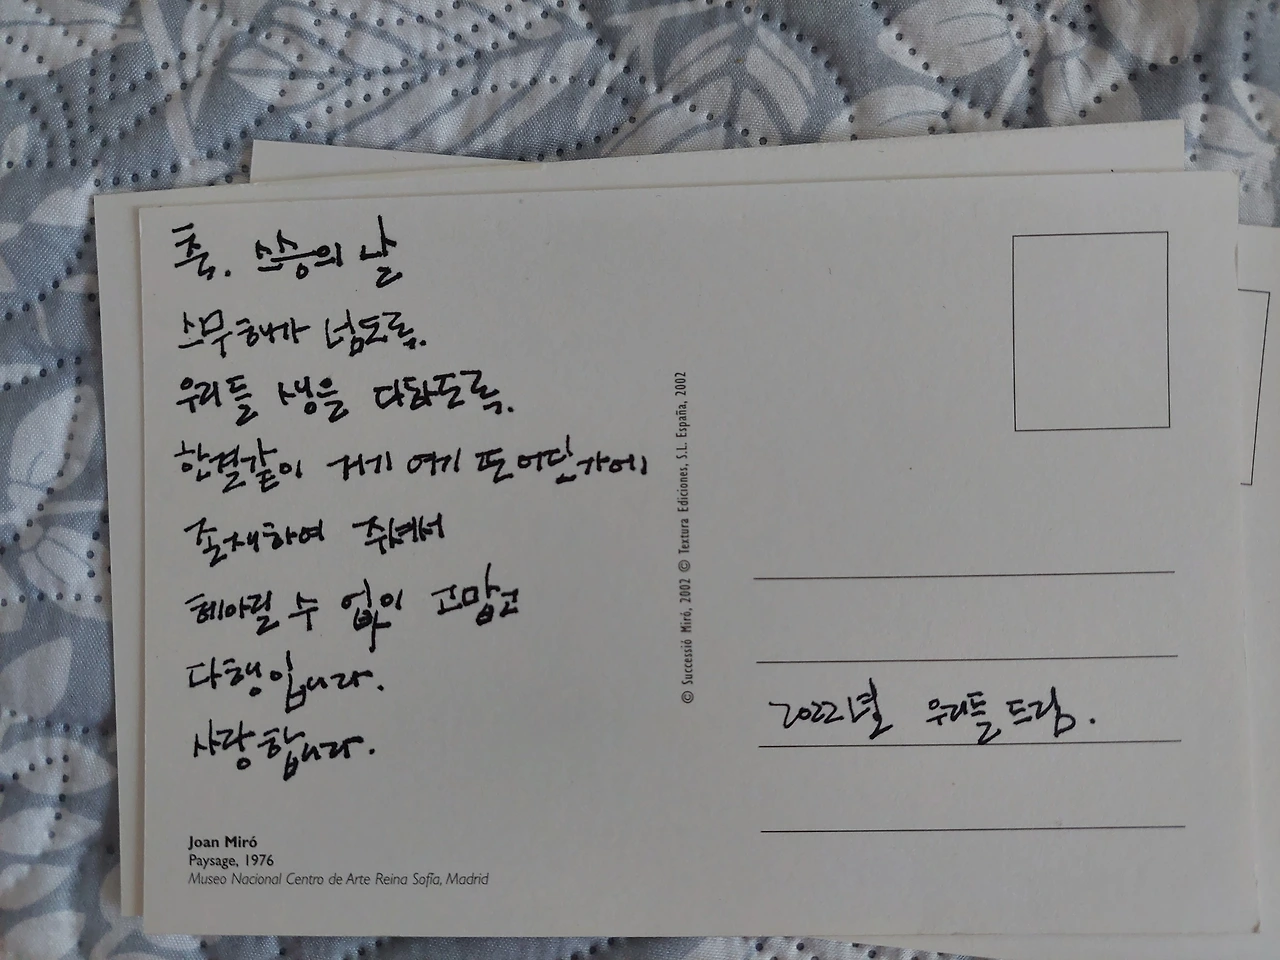 축. 스승의 날
스무해가 넘도록.
우리들 생을 다하도록.
한결같이 거기 여기 또 어딘가에
존재하여 주셔서
헤아릴 수 없이 고맙고
다행입니다.
사랑합니다.
Joan Miró
Paysage, 1976
Museo Nacional Centro de Arte Reina Sofía, Madrid
© Successió Miró, 2002 © Textura Ediciones, S.L. España, 2002
2022년 우리들 드림.